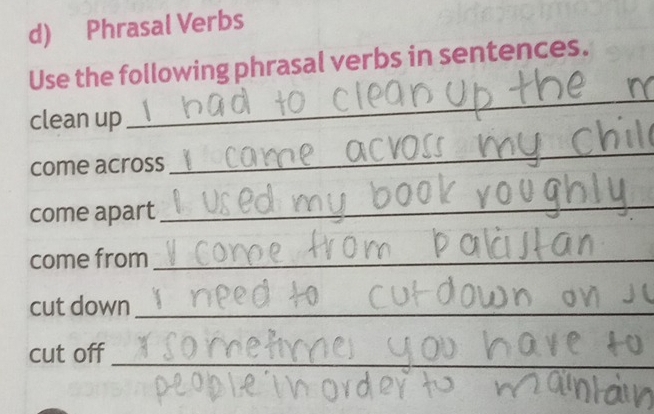 d) Phrasal Verbs
Use the following phrasal verbs in sentences.
clean up I had to clean up the m
come across I came across my chil
come apart I used my book roughly
come from I come from Pakistan
cut down I need to cut down on su
cut off sometimes you have to
people in order to maintain